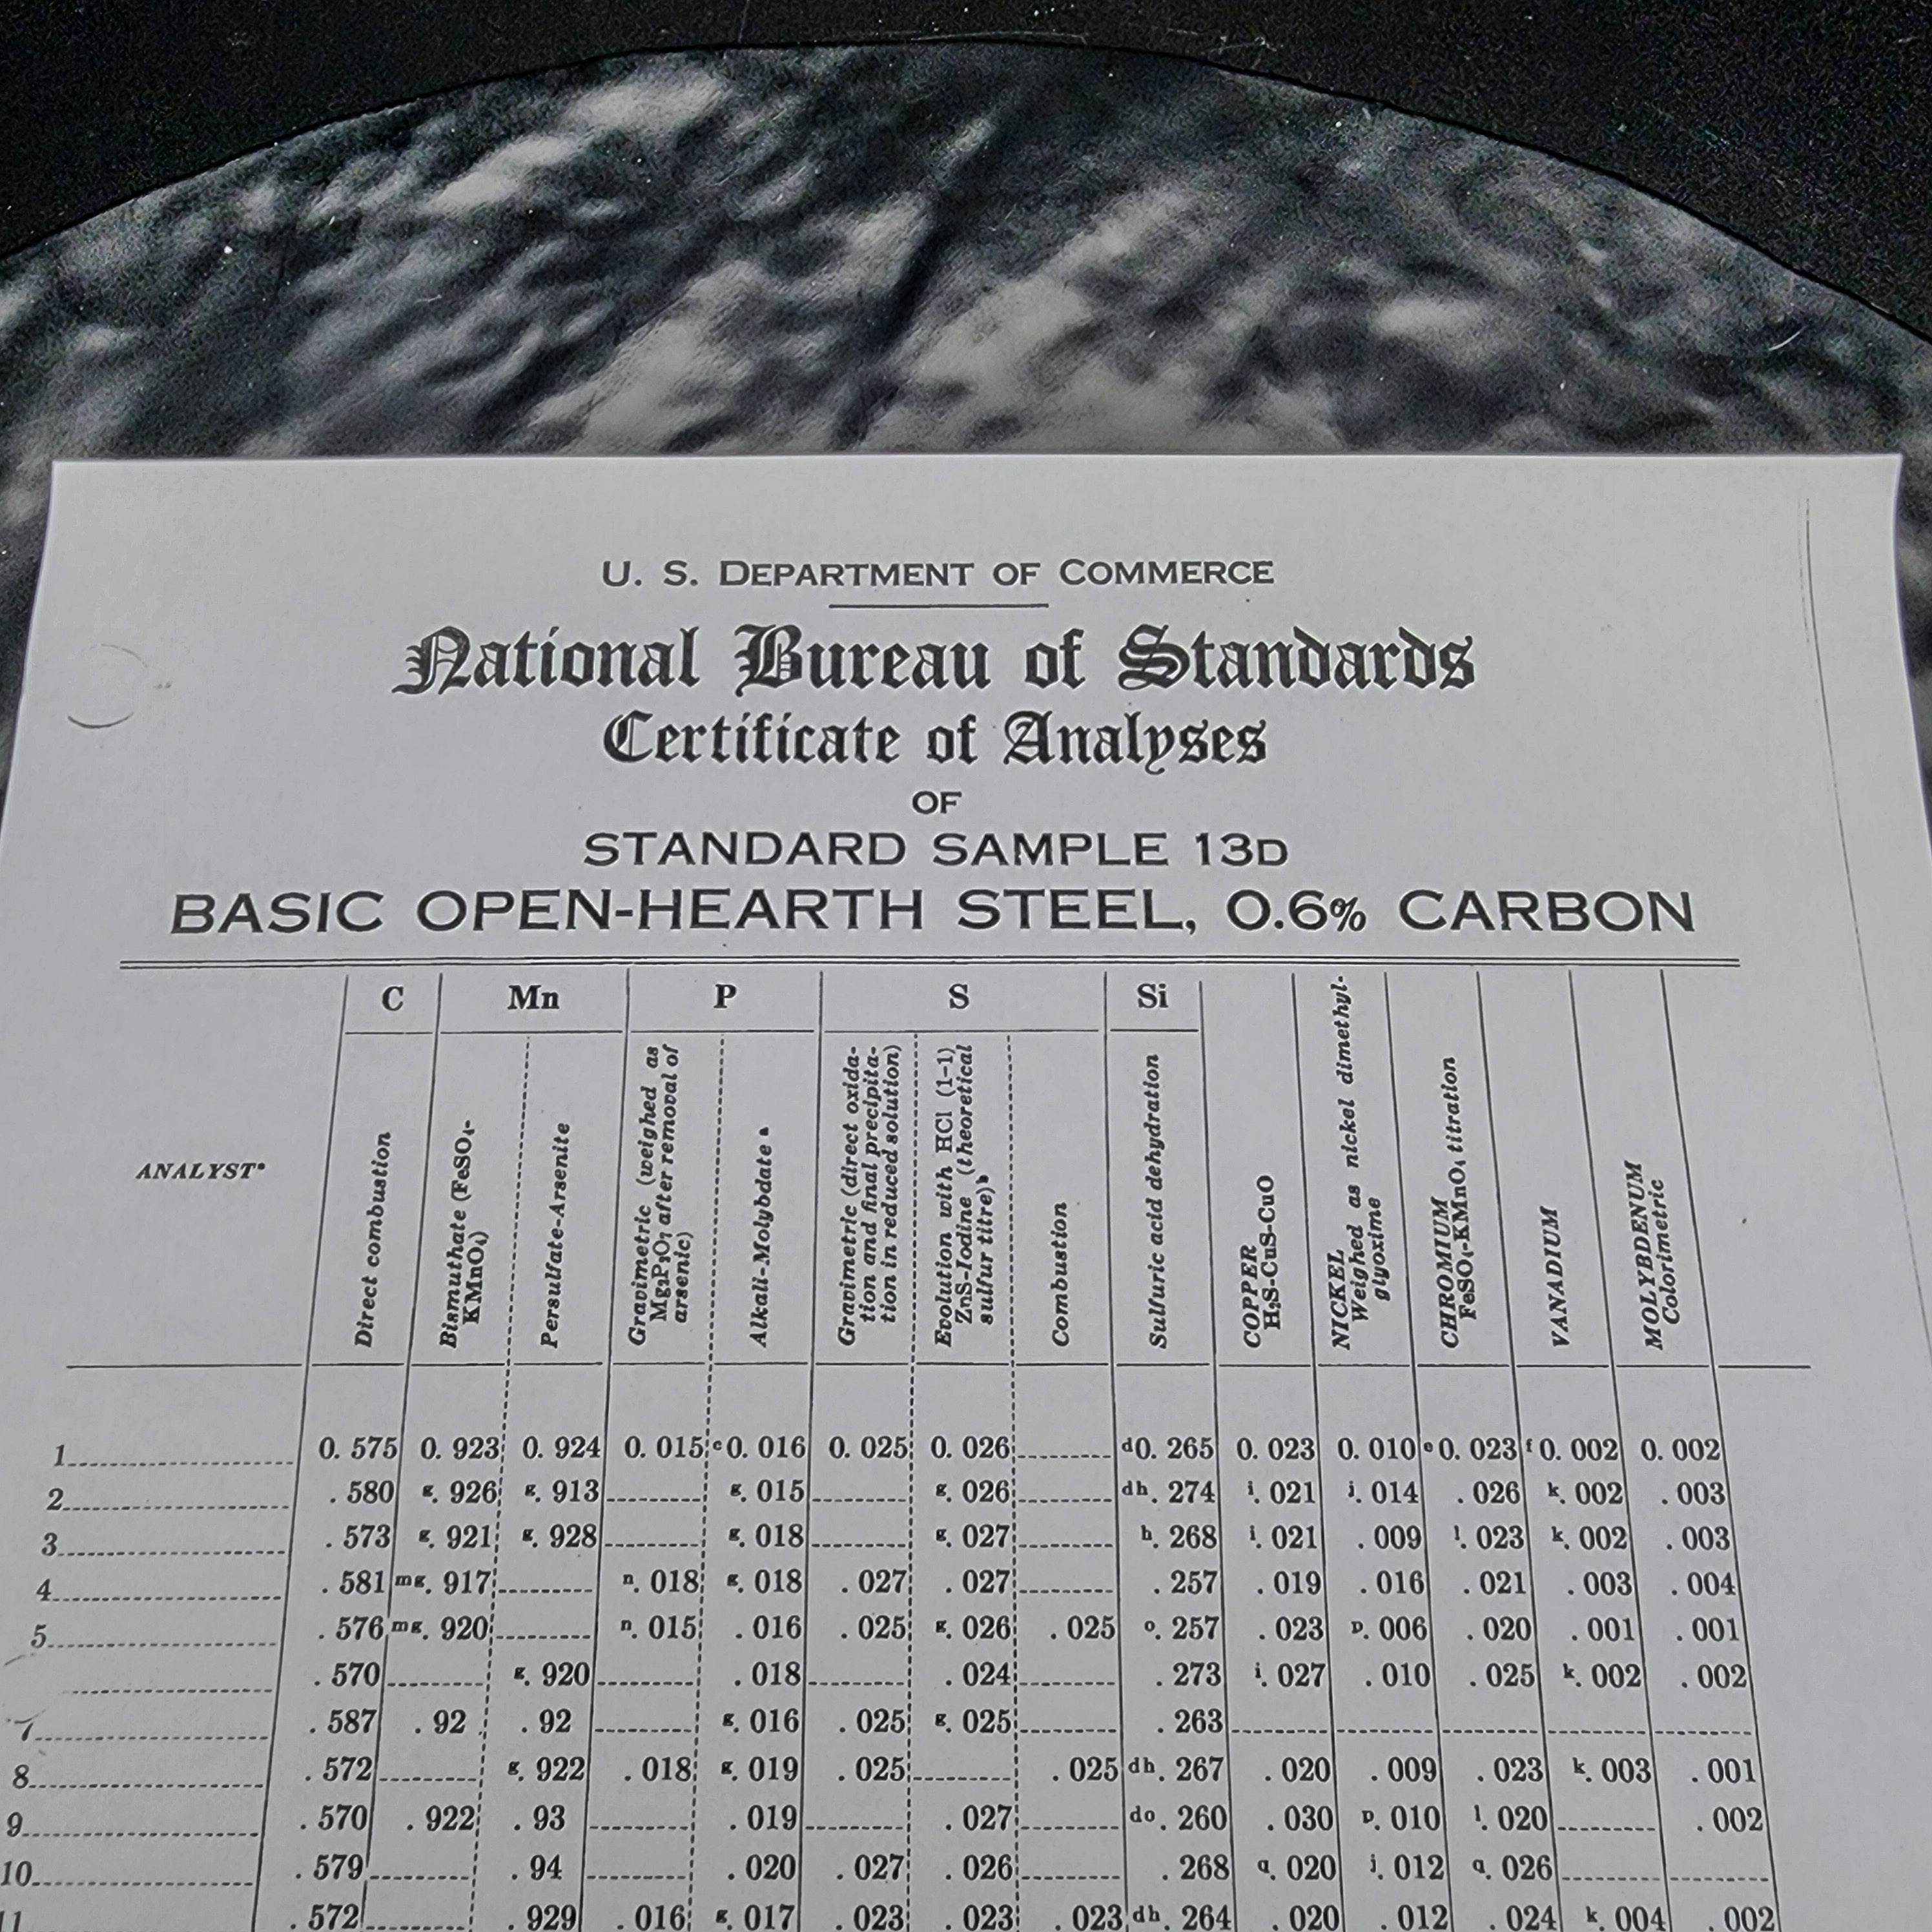 U. S. DEPARTMENT OF COMMERCE
National Bureau of Standards
Certificate of Analyses
OF
STANDARD SAMPLE 13D
BASIC OPEN-HEARTH STEEL, 0.6% CARBON
C Mn P S Si
ANALYST*
Direct combustion
Bismuthate (FeSO₄-
KMnO₄)
Persulfate-Arsenite
Gravimetric (weighed as
Mg₂P₂O₇ after removal of
arsenic)
Alkali-Molybdate ᵃ
Gravimetric (direct oxida-
tion and final precipita-
tion in reduced solution)
Evolution with HCl (1-1)
ZnS-Iodine (theoretical
sulfur titre)ᵇ
Combustion
Sulfuric acid dehydration
COPPER
H₂S-CuS-CuO
NICKEL
Weighed as nickel dimethyl-
glyoxime
CHROMIUM
FeSO₄-KMnO₄ titration
VANADIUM
MOLYBDENUM
Colorimetric
1 0.575 0.923 0.924 0.015 ᶜ0.016 0.025 0.026 ᵈ0.265 0.023 0.010 ᵉ0.023 ᶠ0.002 0.002
2 .580 ᵍ.926 ᵍ.913 ᵍ.015 ᵍ.026 ᵈʰ.274 ⁱ.021 ʲ.014 .026 ᵏ.002 .003
3 .573 ᵍ.921 ᵍ.928 ᵍ.018 ᵍ.027 ʰ.268 ⁱ.021 .009 ˡ.023 ᵏ.002 .003
4 .581 ᵐᵍ.917 ⁿ.018 ᵍ.018 .027 .027 .257 .019 .016 .021 .003 .004
5 .576 ᵐᵍ.920 ⁿ.015 .016 .025 ᵍ.026 .025 ᵒ.257 .023 ᵖ.006 .020 .001 .001
.570 ᵍ.920 .018 .024 .273 ⁱ.027 .010 .025 ᵏ.002 .002
7 .587 .92 .92 ᵍ.016 .025 ᵍ.025 .263
8 .572 ᵍ.922 .018 ᵍ.019 .025 .025 ᵈʰ.267 .020 .009 .023 ᵏ.003 .001
9 .570 .922 .93 .019 .027 ᵈᵒ.260 .030 ᵖ.010 ˡ.020 .002
10 .579 .94 .020 .027 .026 .268 q.020 ʲ.012 q.026
11 .572 .929 .016 ᵍ.017 .023 .023 .023 ᵈʰ.264 .020 .012 .024 ᵏ.004 .002